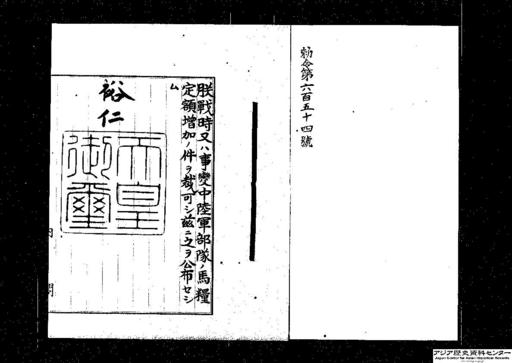 勅令第六百五十四號
朕戰時又ハ事變中陸軍部隊ノ馬糧
定額增加ノ件ヲ裁可シ茲ニ之ヲ公布セシ
ム
裕仁
天皇
御璽
内閣
アジア歴史資料センター
Japan Center for Asian Historical Records